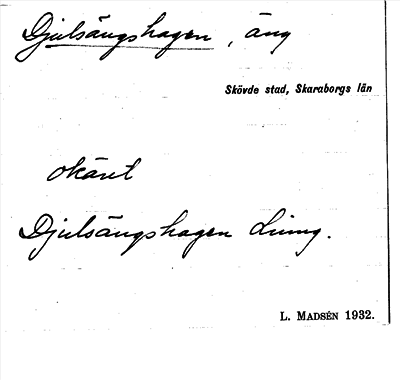 Djulsängshagen, äng
Skövde stad, Skaraborgs län
okänt
Djulsängshagen
L. MADSÉN 1932.